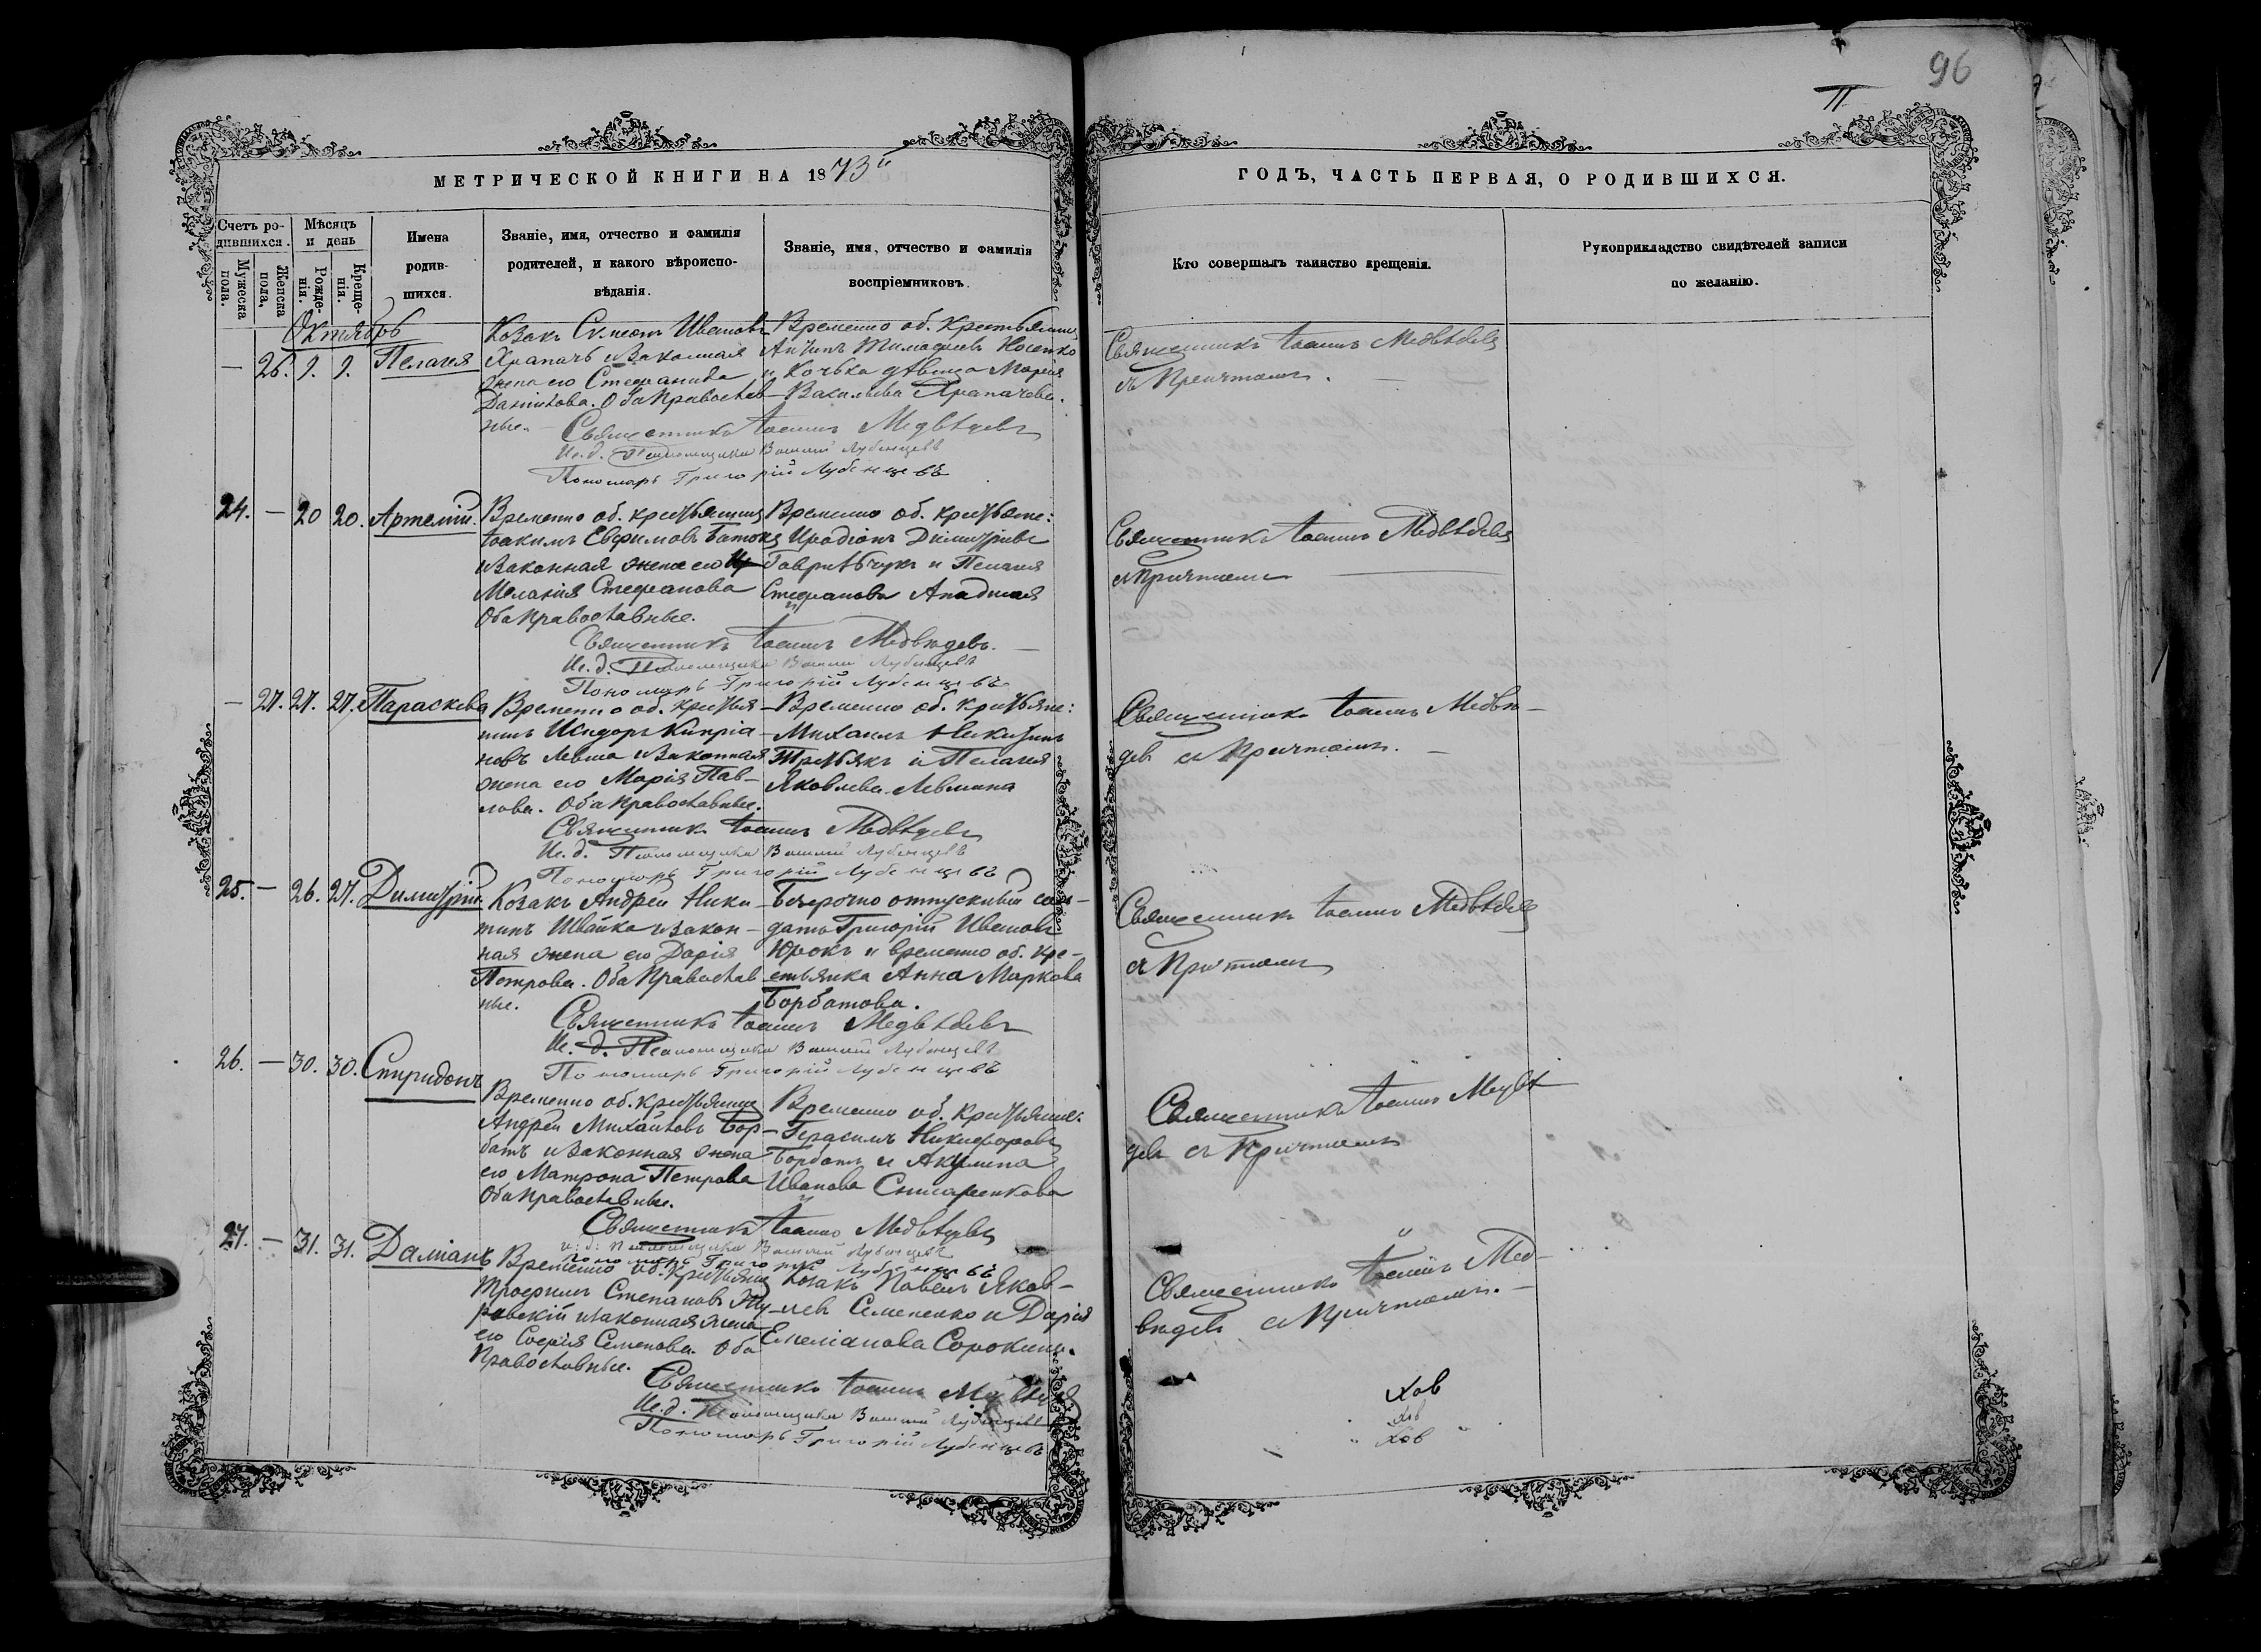 96
П
МЕТРИЧЕСКОЙ КНИГИ НА 1873й
ГОДЪ, ЧАСТЬ ПЕРВАЯ, О РОДИВШИХСЯ.
Счетъ ро-
дившихся.
Мужеска
пола.
Женска
пола.
Мѣсяцъ
и день
Рожде-
нія.
Креще-
нія.
Имена
родив-
шихся.
Званіе, имя, отчество и фамилія
родителей, и какого вѣроиспо-
вѣданія.
Званіе, имя, отчество и фамилія
воспріемниковъ.
Кто совершалъ таинство крещенія.
Рукоприкладство свидѣтелей записи
по желанію.
Октябрь
— 26. 9. 9. Пелагея
Козакъ Ивановъ
Храпачъ и законная
жена его Стефанида
Даніилова. Оба православ-
ные.
Временно об. крестьянинъ
Антипъ Тимофеевъ Носенко
и козъка дѣвица Марія
Васильева Храпачева.
Священникъ Іоаннъ Медвѣдевъ
съ Причтомъ.
Священникъ Іоаннъ Медвѣдевъ
И. д. Псаломщика Василій Лубенцевъ
Пономарь Григорій Лубенцевъ
24. — 20 20. Артемій.
Временно об. крестьянинъ
Іоакимъ Евфимовъ
и законная жена его
Меланія Стефанова
Оба православные.
Временно об. крестьяне:
Иродіонъ Димитріевъ
Гаврильчукъ и Пелагея
Стефанова
Священникъ Іоаннъ Медвѣдевъ
съ причтомъ
Священникъ Іоаннъ Медвѣдевъ.
И. д. Псаломщика Василій Лубенцевъ
Пономарь Григорій Лубенцевъ
— 27. 27. 27. Параскева
Временно об. крестья-
нинъ Исидоръ Кипріа-
новъ Левша и законная
жена его Марія Пав-
лова. Оба православные.
Временно об. крестьяне:
Михаилъ Никитинъ
Третьякъ и Пелагея
Яковлева Левшина
Священникъ Іоаннъ Медвѣ-
девъ съ Причтомъ.
Священникъ Іоаннъ Медвѣдевъ
И. д. Псаломщика Василій Лубенцевъ
Пономарь Григорій Лубенцевъ
25. — 26. 27. Димитрій.
Козакъ Андрей Ники-
тинъ Швайка и закон-
ная жена его Дарія
Петрова. Оба православ-
ные.
Безсрочно отпускный сол-
датъ Григорій Ивановъ
Юрокъ и временно об. кре-
стьянка Анна Маркова
Горбатова.
Священникъ Іоаннъ Медвѣдевъ
съ Причтомъ
Священникъ Іоаннъ Медвѣдевъ
И. д. Псаломщика Василій Лубенцевъ
Пономарь Григорій Лубенцевъ
26. — 30. 30. Спиридонъ
Временно об. крестьянинъ
Андрей Михайловъ Гор-
батъ и законная жена
его Матрона Петрова
Оба православные.
Временно об. крестьяне.
Герасимъ Никифоровъ
Горбатъ и Акулина
Иванова
Священникъ Іоаннъ Медвѣ-
девъ съ Причтомъ
Священникъ Іоаннъ Медвѣдевъ
и: д: Псаломщика Василій Лубенцевъ
Пономарь Григорій Лубенцевъ
27. — 31. 31. Даміанъ
Временно об. крестьянинъ
Трофимъ Степановъ Жу-
равскій и законная жена
его Софія Семенова. Оба
Православные.
Козакъ Павелъ Яков-
левъ Семененко и Дарія
Емеліанова Сорокина.
Священникъ Іоаннъ Мед-
вѣдевъ съ Причтомъ.
Священникъ Іоаннъ Медвѣдевъ
И. д. Псаломщика Василій Лубенцевъ
Пономарь Григорій Лубенцевъ